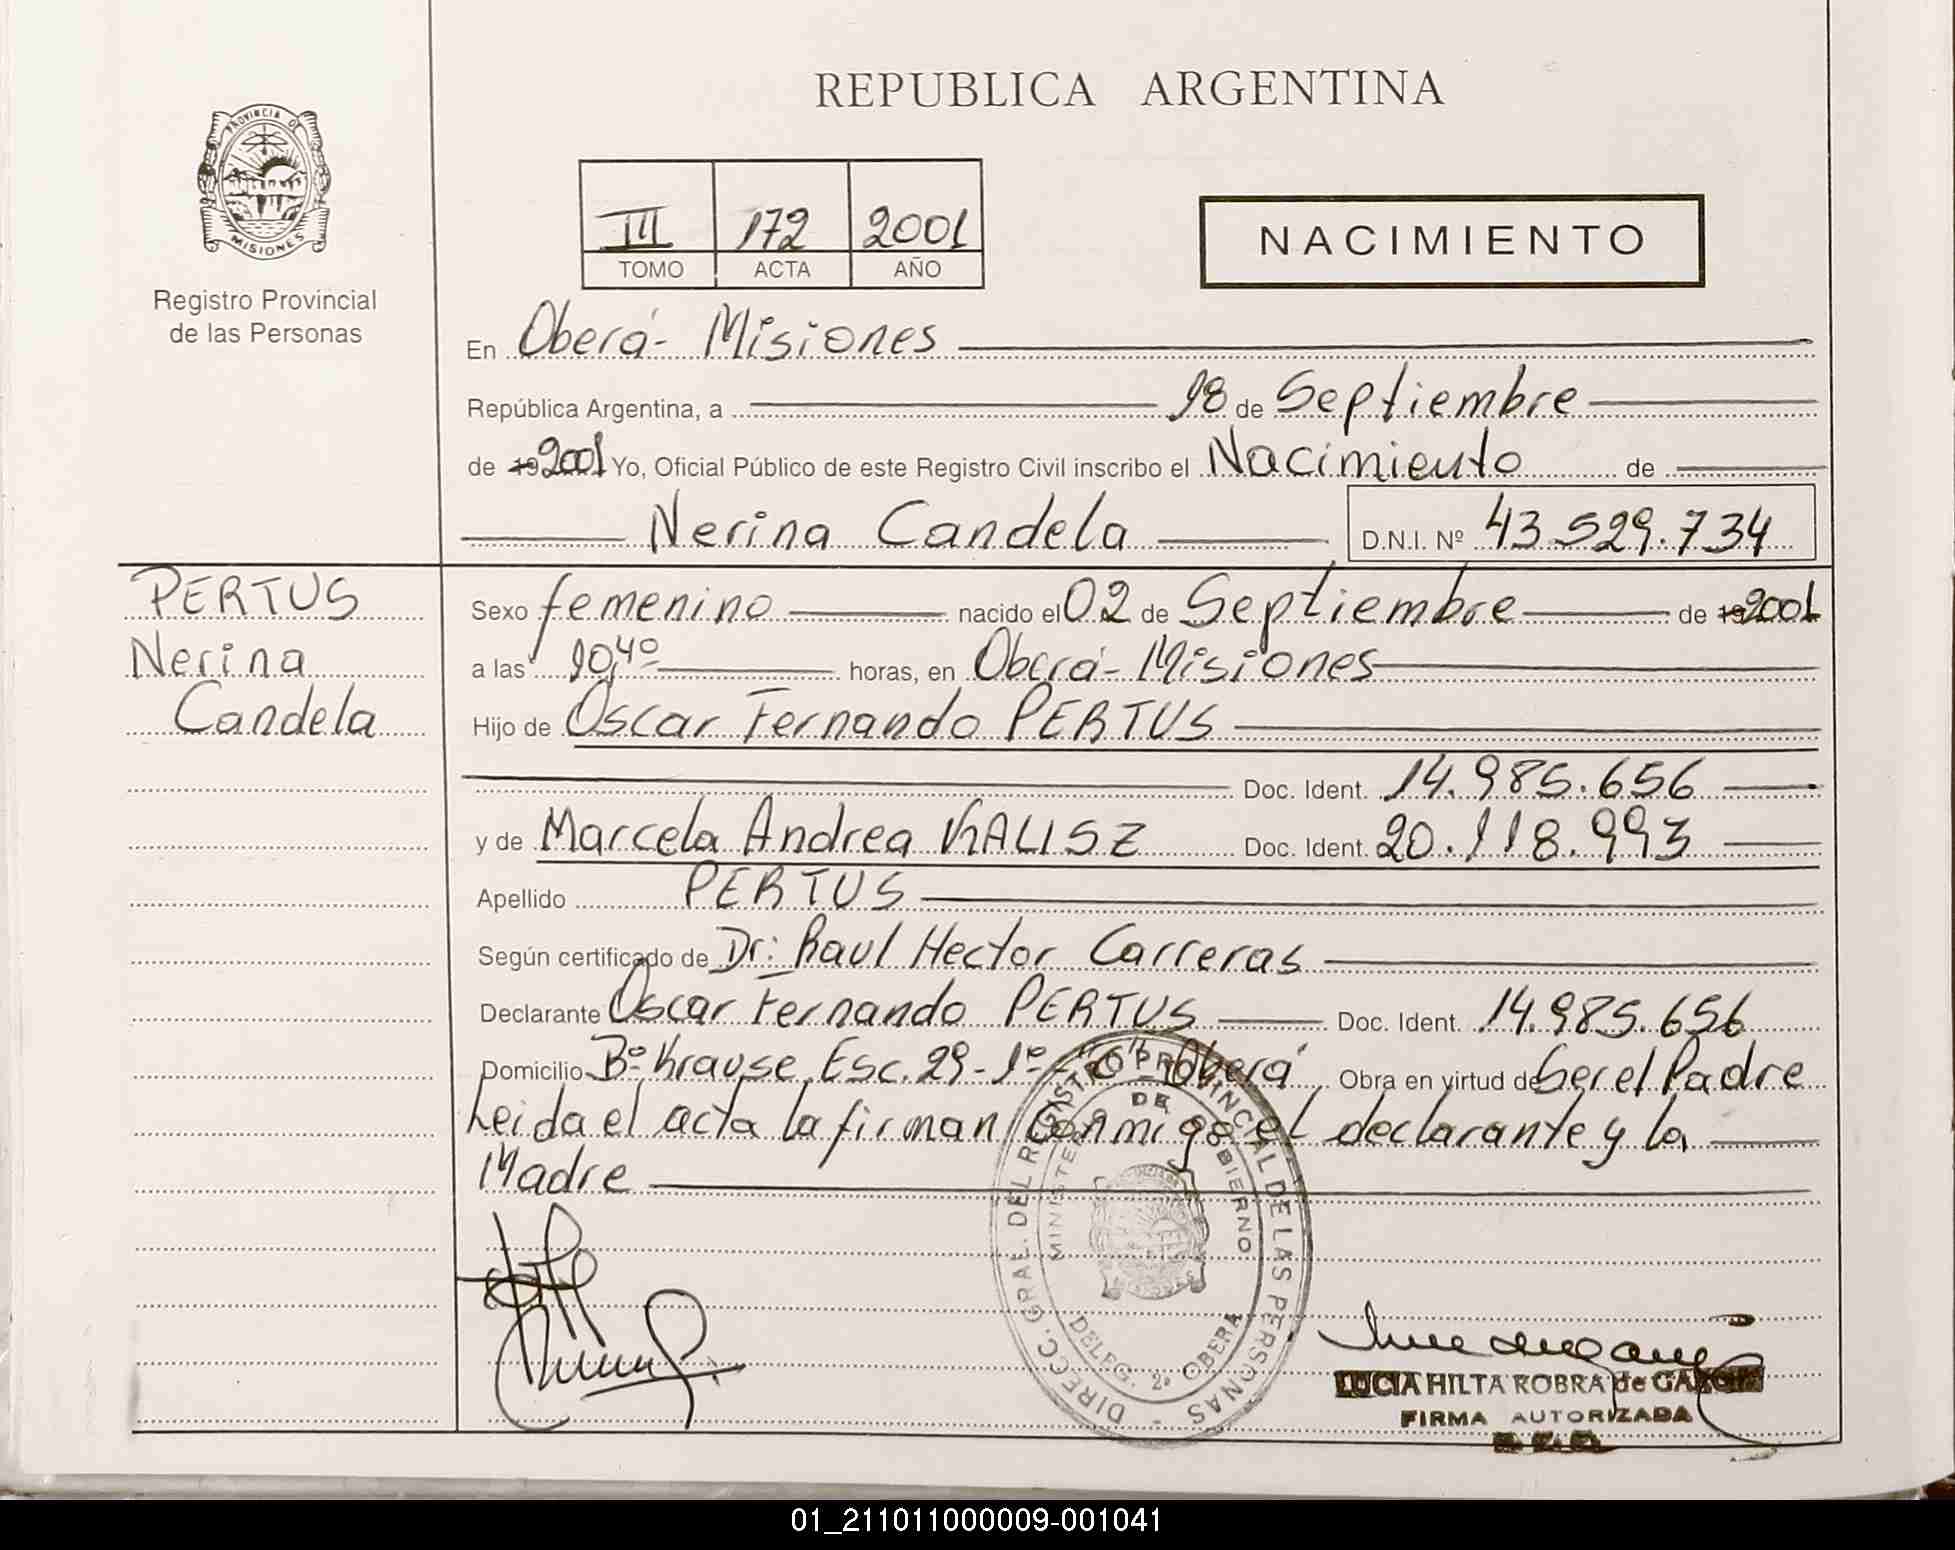 REPUBLICA ARGENTINA
PROVINCIA DE
MISIONES
Registro Provincial
de las Personas
III 172 2001
TOMO ACTA AÑO
NACIMIENTO
En Oberá- Misiones
República Argentina, a 18 de Septiembre
de 19 2001 Yo, Oficial Público de este Registro Civil inscribo el Nacimiento de
Nerina Candela D.N.I. Nº 43.529.734
PERTUS
Nerina
Candela
Sexo femenino nacido el 02 de Septiembre de 19 2001
a las 10,40 horas, en Oberá- Misiones
Hijo de Oscar Fernando PERTUS
Doc. Ident. 14.985.656
y de Marcela Andrea KALISZ Doc. Ident. 20.118.993
Apellido PERTUS
Según certificado de Dr: Raul Hector Carreras
Declarante Oscar Fernando PERTUS Doc. Ident. 14.985.656
Domicilio Bº Krause Esc. 29-1º- "C"- Oberá Obra en virtud de Ser el Padre
Leida el acta la firman Conmigo el declarante y la
Madre
DIRECC. GRAL. DEL REGISTRO PROVINCIAL DE LAS PERSONAS
MINISTERIO DE GOBIERNO
DELEG. 2ª OBERA
LUCIA HILTA ROBRA de
FIRMA AUTORIZADA
01_211011000009-001041